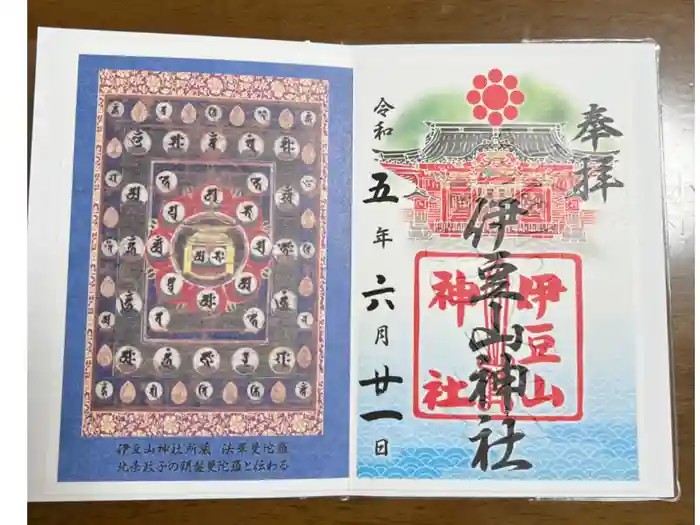 奉拝
伊豆山神社
伊豆山
神社
令和五年六月廿一日
伊豆山神社所蔵 法華曼陀羅
北条政子の頭髪曼陀羅と伝わる